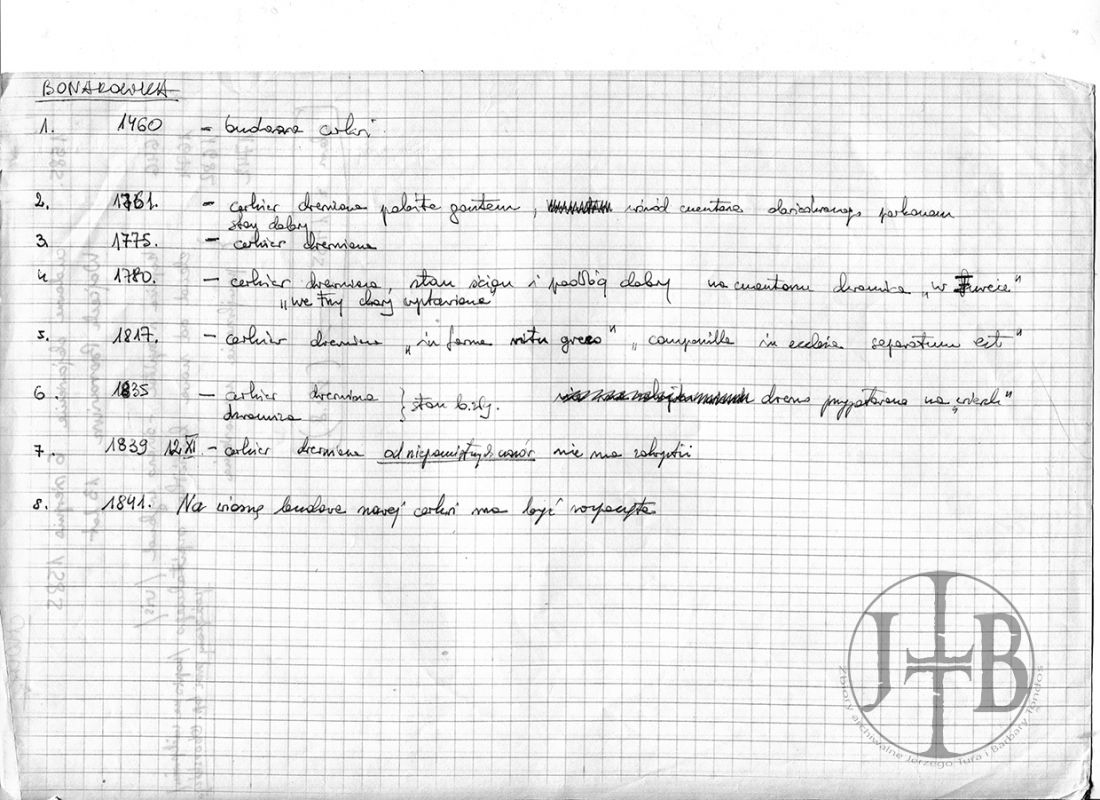 BONARÓWKA
1. 1460 – budowa cerkwi
2. 1761. – cerkiew drewniana pobita gontem, wśród cmentarza parkanem
stan dobry
3. 1775. – cerkiew drewniana
4. 1780. – cerkiew drewniana, stan ścian i podłóg dobry na cmentarzu dzwonica „w
„we trzy chory wystawiona"
5. 1817. – cerkiew drewniana „in forma ritu greco" „campanilla in ecclesia separatum est"
6. 1835 – cerkiew drewniana } stan b. zły. drewno przygotowane na
dzwonica
7. 1839 12.XI – cerkiew drewniana od niepamiętnych czasów nie ma zakrystii
8. 1841. Na wiosnę budowa nowej cerkwi ma być rozpoczęta
J T B
Zbiory archiwalne Jerzego Tura i Barbary Tondos